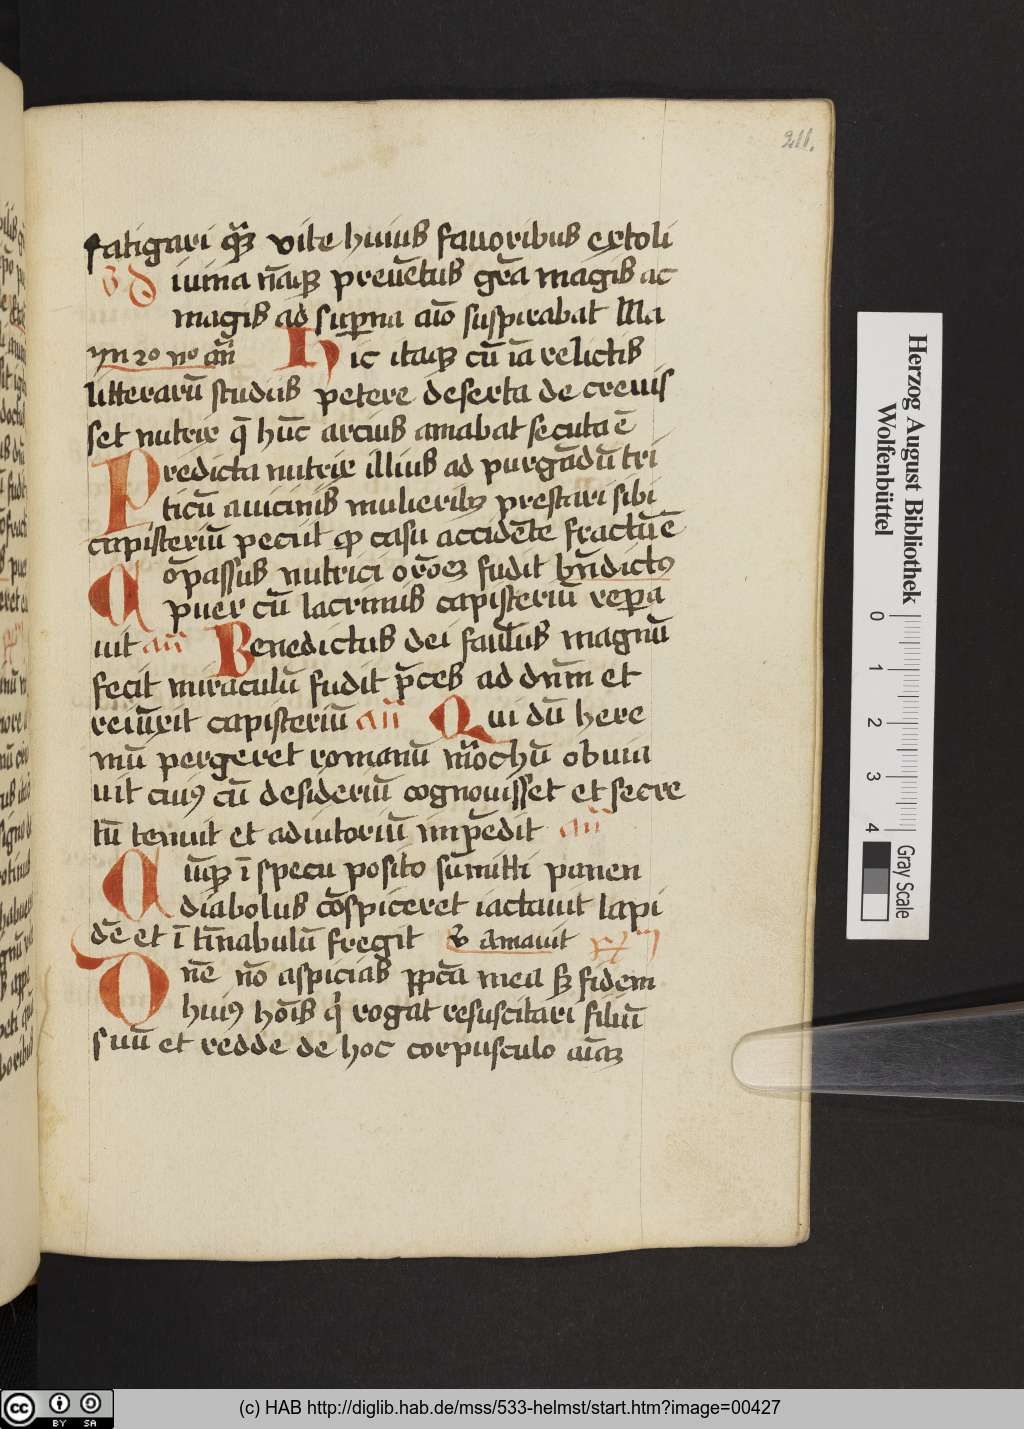 211.
fatigari qͣꝫ vite huius fauoribus extoli
V D iuina nāqꝫ preuētus grā magis ac
magis ad suꝑna aīo suspirabat Ma
yn 2o no an̄ Hic itaqꝫ cū iā relictis
litterarū studiis petere deserta de creuis
set nutrix q̄ hūc arcius amabat secuta ē
Predicta nutrix illius ad purgādū tri
ticū a uicinis mulieribꝫ prestari sibi
capisteriū peciit qͦ casu accidēte fractū ē
Cōpassus nutrici orōeꝫ fudit bn̄dictꝰ
puer cū lacrimis capisteriū reꝑa
uit an̄ Benedictus dei faml̄us magnū
fecit miraculū fudit p̄ces ad dnm̄ et
reiūxit capisteriū an̄ Qui dū here
mū pergeret romanū mōchū obuia
uit cuiꝰ cū desideriū cognouisset et secre
tū tenuit et adiutoriū imp̄edit an̄
Cūqꝫ ī specu posito sūmitti panem
diabolus cōspiceret iactauit lapi
dē et ī tīnabulū fregit V Amauit
Dn̄e nō aspicias ꝓpcā mea sꝫ fidem
huiꝰ hoīs qͥ rogat resuscitari filiū
suū et redde de hoc corpusculo aīaꝫ
Herzog August Bibliothek
Wolfenbüttel
0
1
2
3
4
Gray Scale
cc BY SA
(c) HAB http://diglib.hab.de/mss/533-helmst/start.htm?image=00427